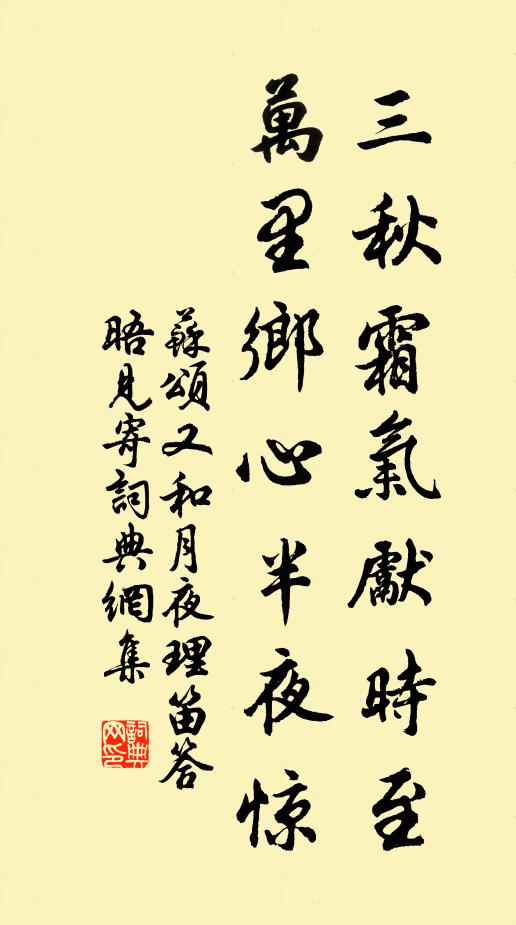 三秋霜氣獻時至
萬里鄉心半夜惊
蘇頌又和月夜理笛答
晤見寄詞典網集
詞典網印